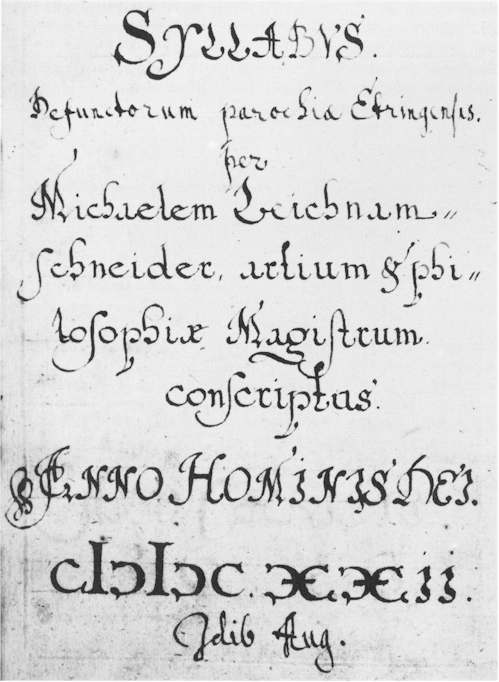 SYLLABVS.
Defunctorum parochiæ Etringensis.
per
Michaelem Leichnam〃
schneider, artium & phi〃
losophiæ Magistrum
conscriptus.
ANNO HOMINIS DEI.
cIɔIɔc. XXii.
Idib Aug.